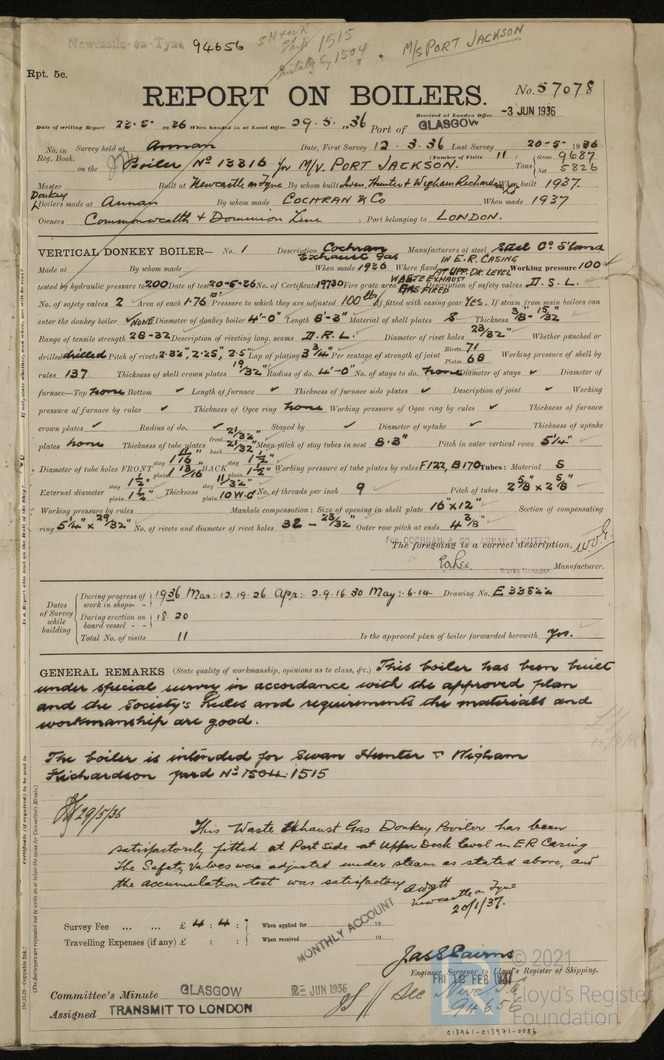 Newcastle-on-Tyne 94656
1515
M/S PORT JACKSON
Rpt. 5e.
REPORT ON BOILERS.
No. 57078
Received at London Office -3 JUN 1936
Date of writing Report 22-5-1936 When handed in at Local Office 29.5.1936 Port of GLASGOW
No. in Survey held at Annan Date, First Survey 12.3.36 Last Survey 20-5-1936
Reg. Book. (Number of Visits 11) Gross 9687
on the Boiler Nº 13316 for M/V. PORT JACKSON. Tons Net 5826
Master Built at Newcastle on Tyne By whom built Swan, Hunter & Wigham Richardson When built 1937.
Donkey Boilers made at Annan By whom made COCHRAN & Co When made 1937
Owners Commonwealth & Dominion Line Port belonging to LONDON.
VERTICAL DONKEY BOILER— No. 1 Description Cochran Exhaust Gas Manufacturers of steel
Made at By whom made When made 1936 Where fixed IN E.R. CASING AT UPP. DK. LEVEL Working pressure 100
tested by hydraulic pressure to 200 Date of test 20-5-36 No. of Certificate 19730 Fire grate area WASTE EXHAUST GAS FIRED Description of safety valves D.S.L.
No. of safety valves 2 Area of each 1·76 Pressure to which they are adjusted 100 lb If fitted with casing gear Yes. If steam from main boilers can
enter the donkey boiler NONE Diameter of donkey boiler 4'-0" Length 8'-3" Material of shell plates S Thickness 3/8" - 15/32"
Range of tensile strength 28-32 Description of riveting long. seams D.R.L. Diameter of rivet holes 23/32" Whether punched or
drilled drilled Pitch of rivets 2·32", 2·25", 2·5" Lap of plating 3 3/4" Per centage of strength of joint Rivets 71 Plates 68 Working pressure of shell by
rules 137 Thickness of shell crown plates 19/32" Radius of do. 4'-0" No. of stays to do. none Diameter of stays ✓ Diameter of
furnace—Top none Bottom ✓ Length of furnace ✓ Thickness of furnace side plates ✓ Description of joint ✓ Working
pressure of furnace by rules ✓ Thickness of Ogee ring none Working pressure of Ogee ring by rules ✓ Thickness of
crown plates ✓ Radius of do. ✓ Stayed by ✓ Diameter of uptake ✓ Thickness of uptake
plates none Thickness of tube plates front 21/32" back 21/32" Mean pitch of stay tubes in nest 8·3" Pitch in outer vertical rows 5 1/4"
Diameter of tube holes FRONT stay 1 11/16" plain 1 13/16" BACK stay 1 1/2" plain 1 1/2" Working pressure of tube plates by rules F122, B170 Tubes: Material S
External diameter stay 1 1/2" plain 1 1/2" Thickness stay 11/32" plain 10 W.G No. of threads per inch 9 Pitch of tubes 2 5/8" x 2 5/8"
Working pressure by rules Manhole compensation: Size of opening in shell plate 16"x12" Section of compensating
ring 5 1/4" x 29/32" No. of rivets and diameter of rivet holes 32 - 23/32" Outer row pitch at ends 4 3/8"
For COCHRAN & CO. ANNAN, LIMITED
The foregoing is a correct description,
Works Manager. Manufacturer.
Dates of Survey while building
During progress of work in shops - - 1936 Mar: 12.19.26 Apr: 2.9.16 30 May: 6.14 Drawing No. E 33522
During erection on board vessel - - 18.20
Total No. of visits 11 Is the approved plan of boiler forwarded herewith Yes.
GENERAL REMARKS (State quality of workmanship, opinions as to class, &c.) This boiler has been built
under special survey in accordance with the approved plan
and the Society's Rules and requirements the materials and
workmanship are good.
The boiler is intended for Swan Hunter & Wigham
Richardson yard Nº 1504 1515
29/5/36
This Waste Exhaust Gas Donkey Boiler has been
satisfactorily fitted at Port Side at Upper Deck level in ER Casing
The Safety Valves were adjusted under steam as stated above, and
the accumulation test was satisfactory
Newcastle on Tyne
20/1/37.
Survey Fee ... ... £ 4 : 4 : When applied for 19
Travelling Expenses (if any) £ : : When received 19
MONTHLY ACCOUNT
Jas S Cairns
Engineer Surveyor to Lloyd's Register of Shipping.
Committee's Minute GLASGOW 2 JUN 1936 FRI FEB 1937
Assigned TRANSMIT TO LONDON
See Nwc. F.E. 94656
© 2021
Lloyd's Register
Foundation
013961-013971-0086